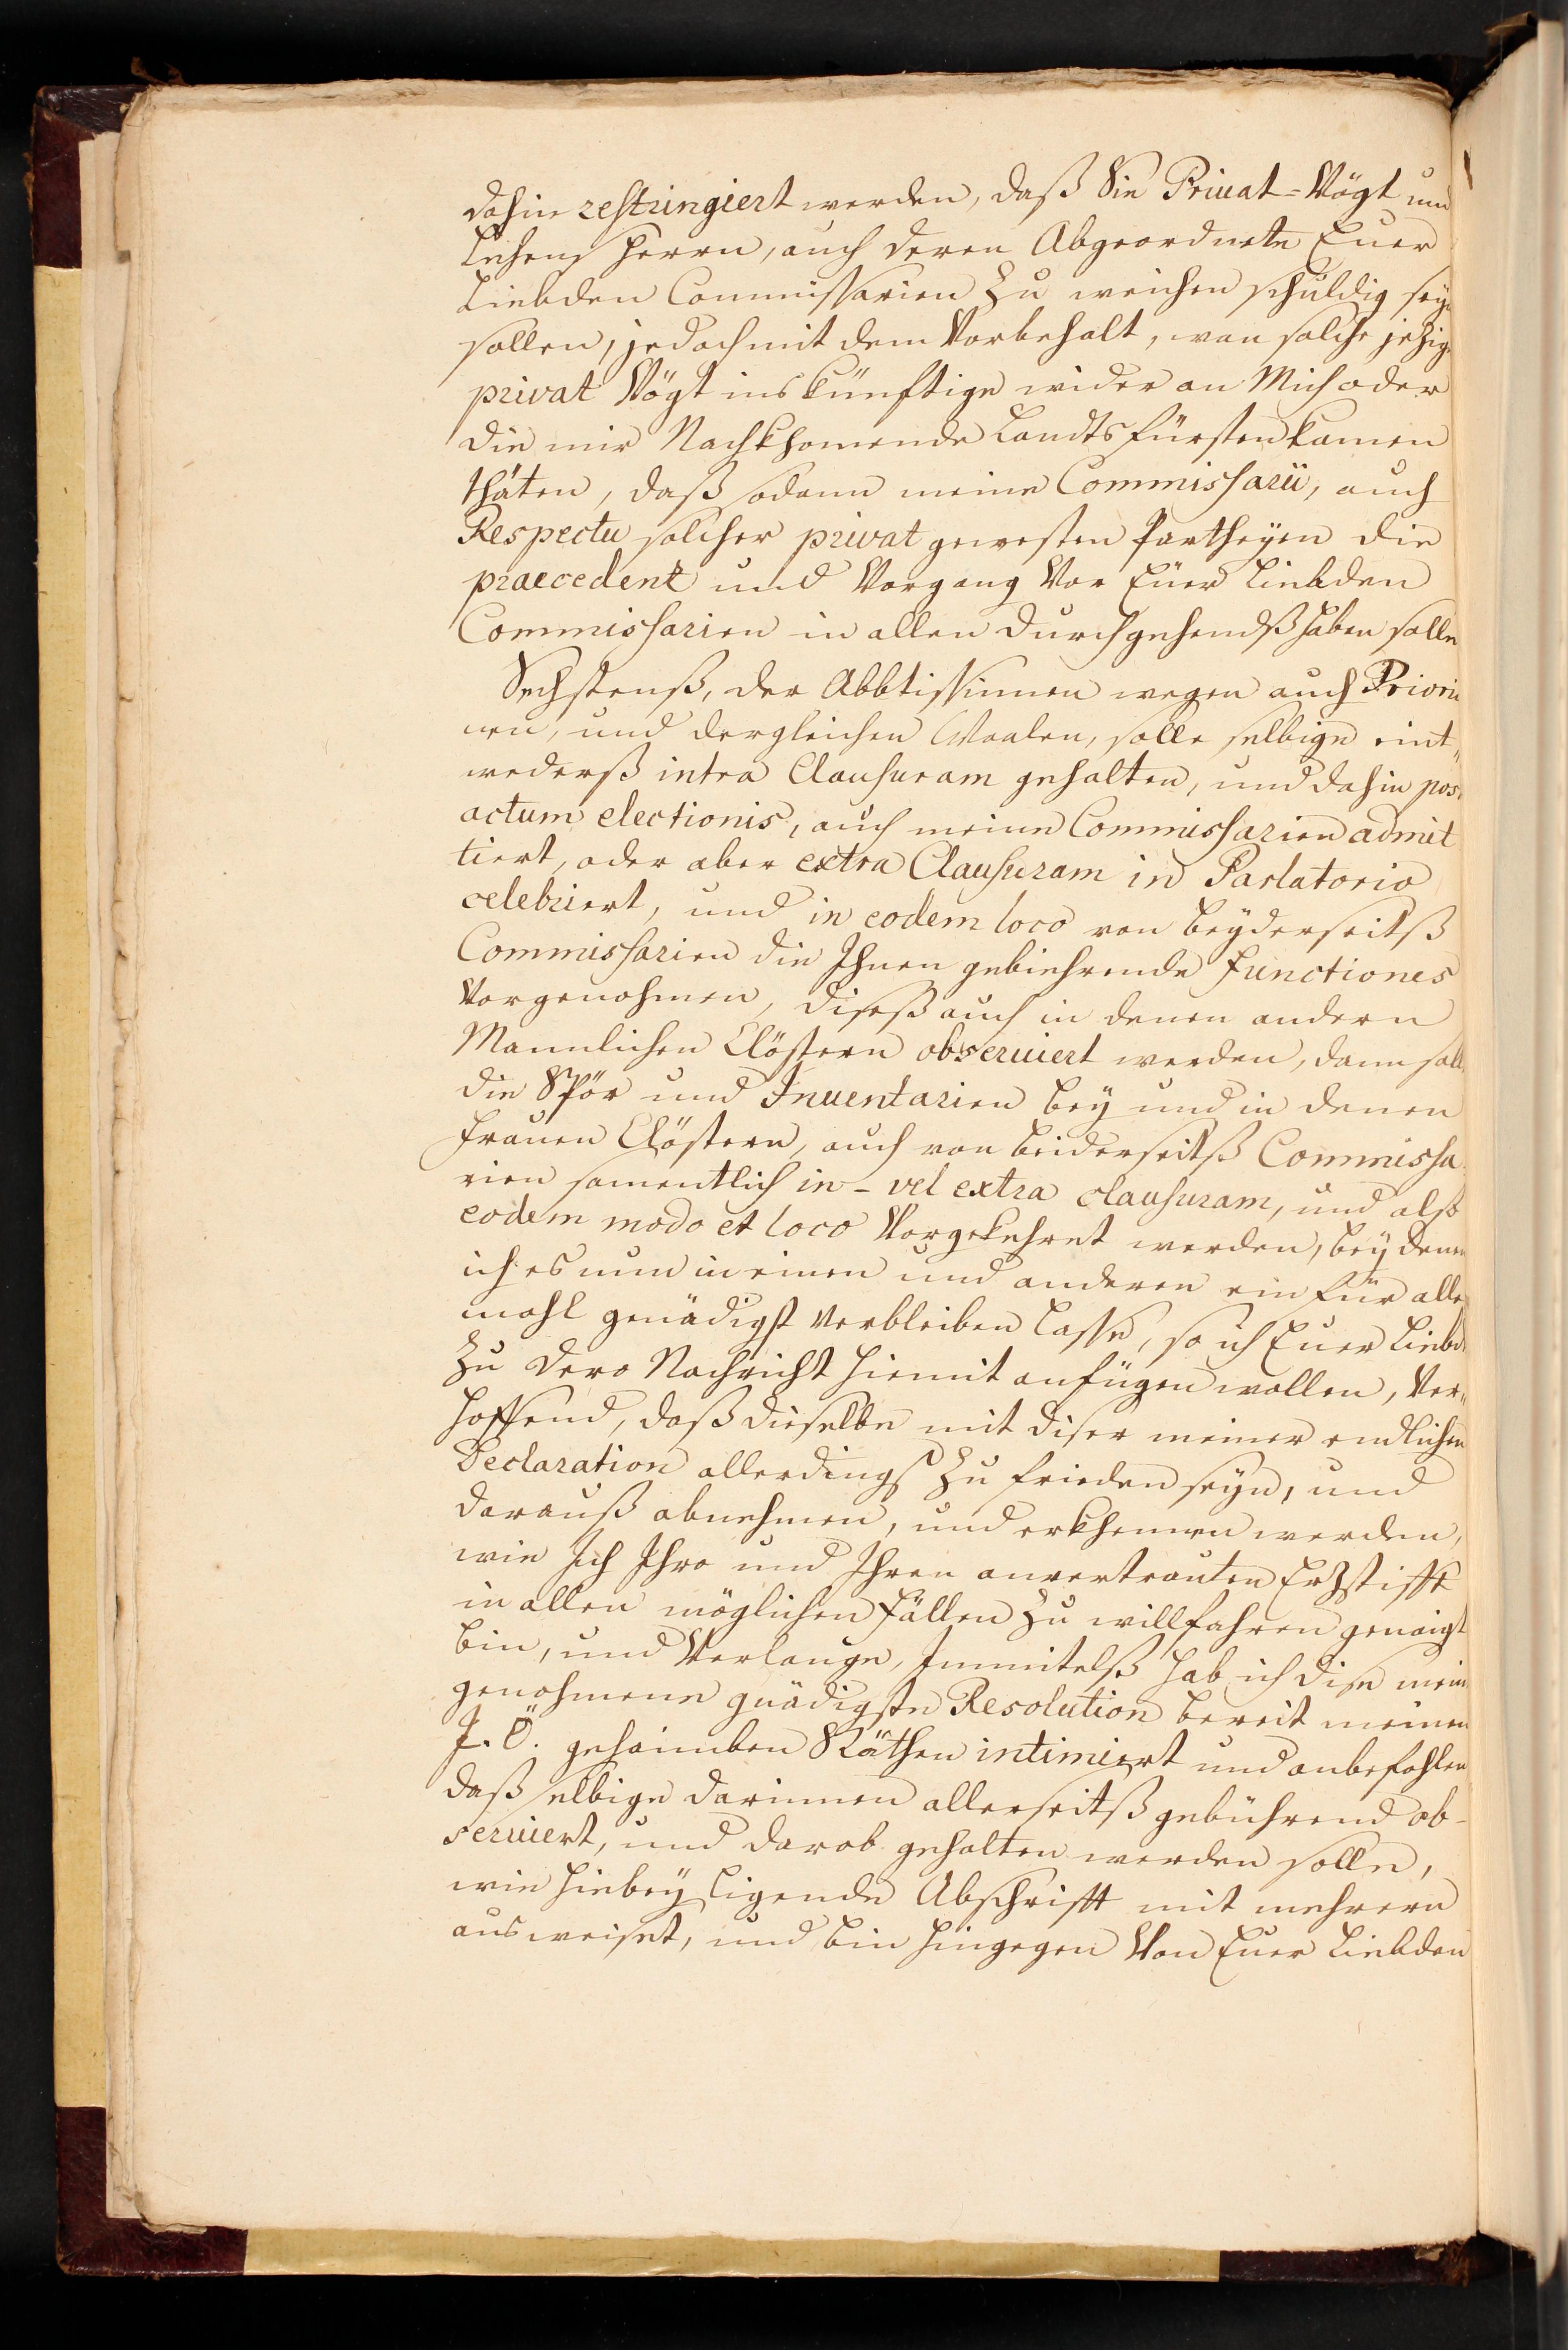 dahin restringiert werden, daß die Privat-Vögt und
Lehens Herrn, auch deren Abgeordnete Euer
Liebden Commissarien zu weichen schuldig seyn
sollen, jedoch mit dem Vorbehalt, wan solche jezige
privat Vögt ins künfftige wider an Mich oder
die mir Nachkhomende Landtsfürsten kamen
thäten, daß sodann meine Commissarii, auch
Respectu solcher privat gewesten Partheyen die
praecedenz und Vorgang Vor Euer Liebden
Commissarien in allen durchgehendß haben solle
Sechstenß, der Abbtissinnen wegen auch Priorin
nen, und dergleichen Waalen, solle selbige eint„
wederß intra Clausuram gehalten, und dahin post
actum electionis, auch meine Commissarien admit
tiert, oder aber extra Clausuram in Parlatorio
celebriert, und in eodem loco von beyderseitß
Commissarien die Ihnen gebiehrende functiones
Vorgenohmen, disesß auch in denen andern
Mannlichen Clöstern observiert werden, dann solle
die Spör und Inventarien bey und in denen
Frauen Clöstern, auch von beiderseitß Commissa
rien samentlich in- vel extra clausuram, und alß
eodem modo et loco Vorgekehret werden, bey denen
ich es nun in einen und anderen ein für alle
mahl genädigst verbleiben lasse, so ich Euer Liebd.
zu dero Nachricht hiemit anfügen wollen, Ver„
hoffend, daß dieselbe mit diser meiner endlichen
Declaration allerdings zu frieden seyn, und
darauß abnehmen, und erkhennen werden,
wie Ich Ihro und Ihren anvertrauten Erzstifft
in allen möglichen fällen zu willfahren genaigt
bin, und Verlange, Immitelß hab ich dise mein
genohmene gnädigste Resolution bereit meinen
I. Ö. gehaimben Räthen intimiert und anbefohlen
daß selbige darinnen allerseitß gebührend ob-
serviert, und darob gehalten werden solle,
wie hiebey ligende Abschrifft mit mehrern
ausweiset, und bin hingegen Von Euer Liebden